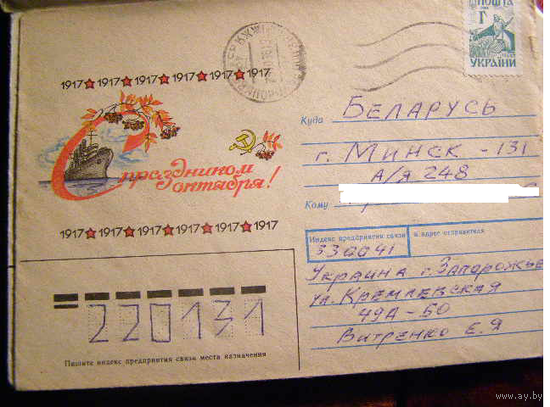 ПОШТА
Г
УКРАЇНИ
1917 ★ 1917 ★ 1917 ★ 1917 ★ 1917 ★ 1917
С праздником
октября!
1917 ★ 1917 ★ 1917 ★ 1917 ★ 1917 ★ 1917
Куда БЕЛАРУСЬ
г. МИНСК - 131
А/Я 248
Кому
Индекс предприятия связи и адрес отправителя
330041
УКРАИНА г. ЗАПОРОЖЬЕ
ул. КРЕМЛЕВСКАЯ
49А - 60
ВИТРЕНКО Е.Я
220131
Пишите индекс предприятия связи места назначения
www.ay.by